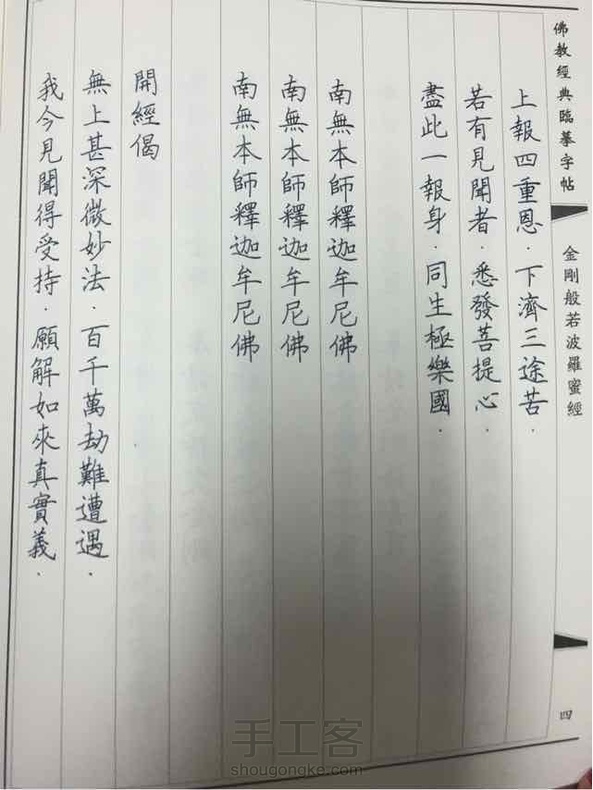 佛教經典臨摹字帖
金剛般若波羅蜜經
四
上報四重恩．下濟三途苦．
若有見聞者．悉發菩提心．
盡此一報身．同生極樂國．
南無本師釋迦牟尼佛
南無本師釋迦牟尼佛
南無本師釋迦牟尼佛
開經偈
無上甚深微妙法．百千萬劫難遭遇．
我今見聞得受持．願解如來真實義．
手工客
shougongke.com